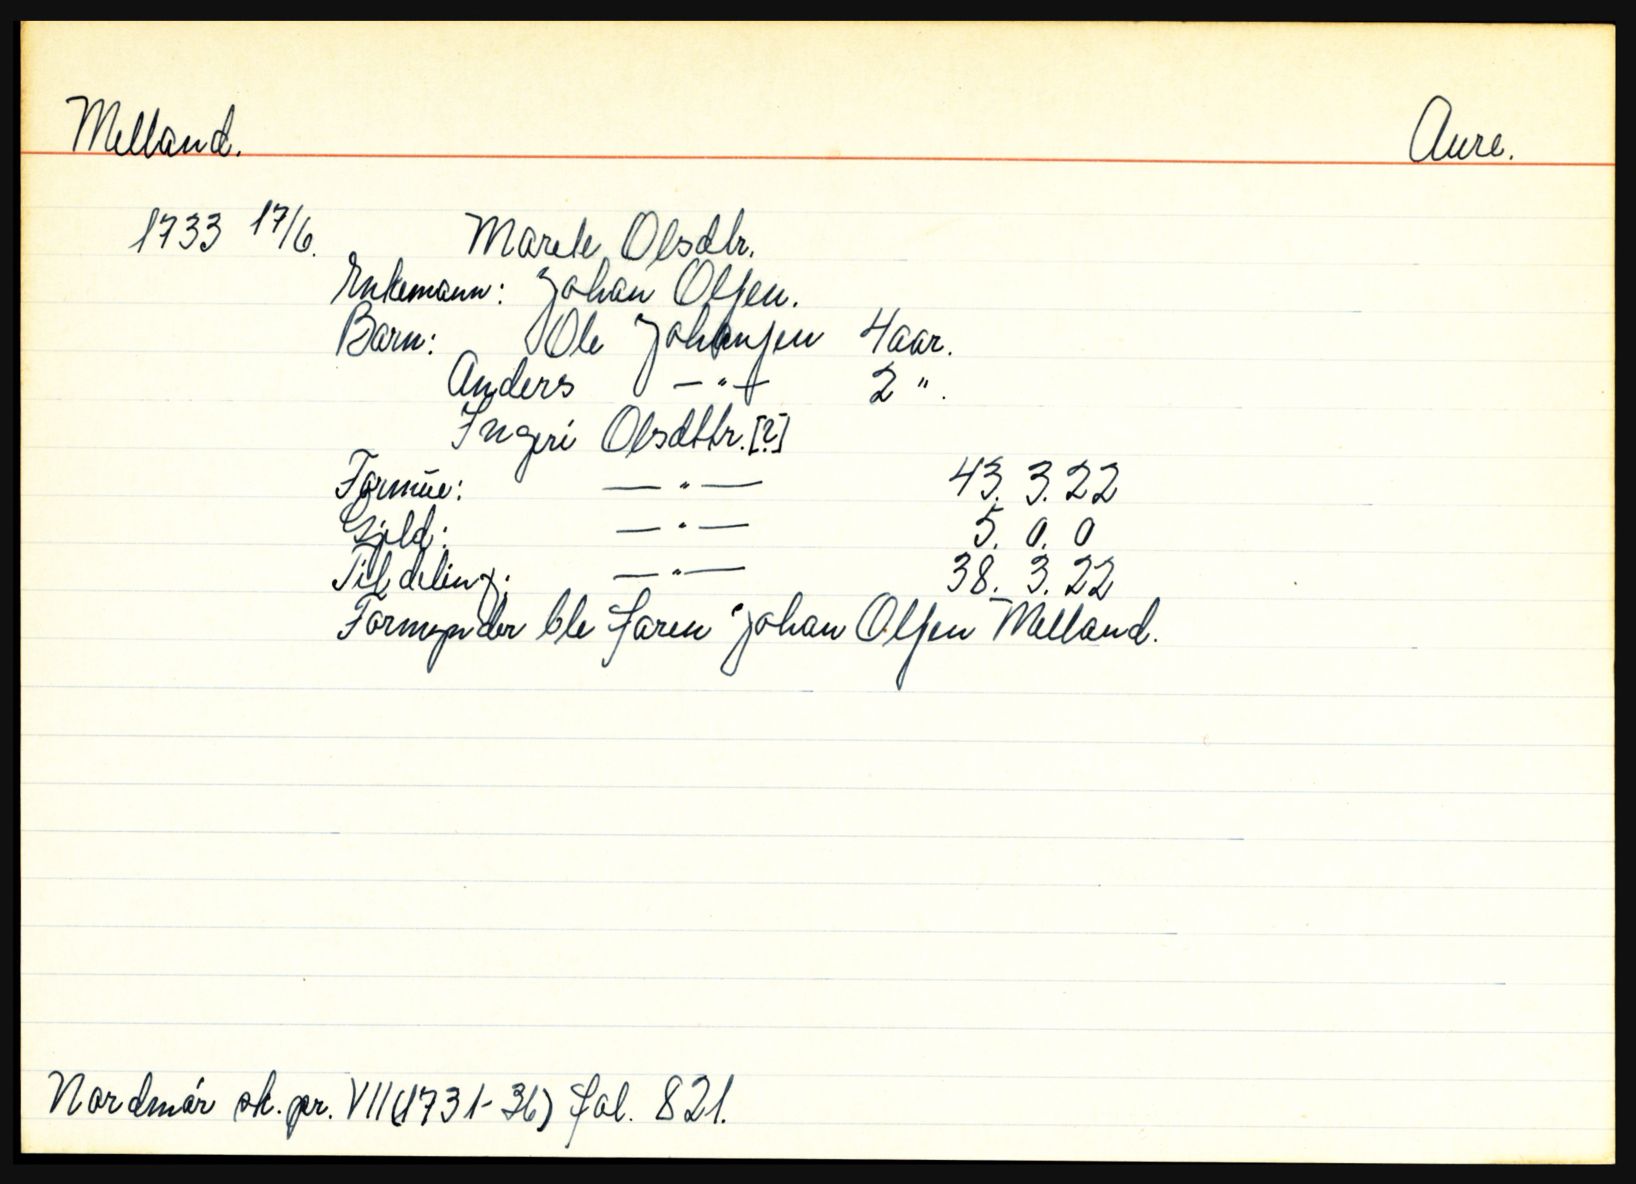 Melland. Aure.
1733 17/6. Marete Olsdtr.
Enkemann: Johan Olsen.
Barn: Ole Johansen 4 aar.
Anders —"— 2 ".
Ingeri Olsdttr. [?]
Formue: —"— 43. 3. 22
Gjeld: —"— 5. 0. 0
Til deling: —"— 38. 3. 22
Formynder ble faren Johan Olsen Melland.
Nordmør sk. pr. VII (1731-36) fol. 821.